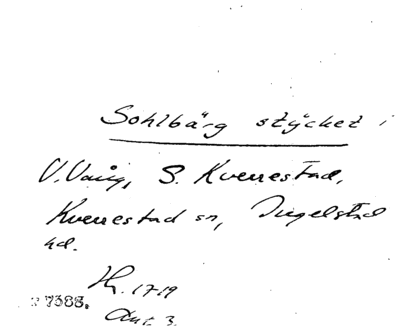 Sohlbärg stÿcket i
V. Vång, S. Kverrestad,
Kverrestad sn, Ingelstad
hd.
Hr. 1719
7388.
Akt 3.